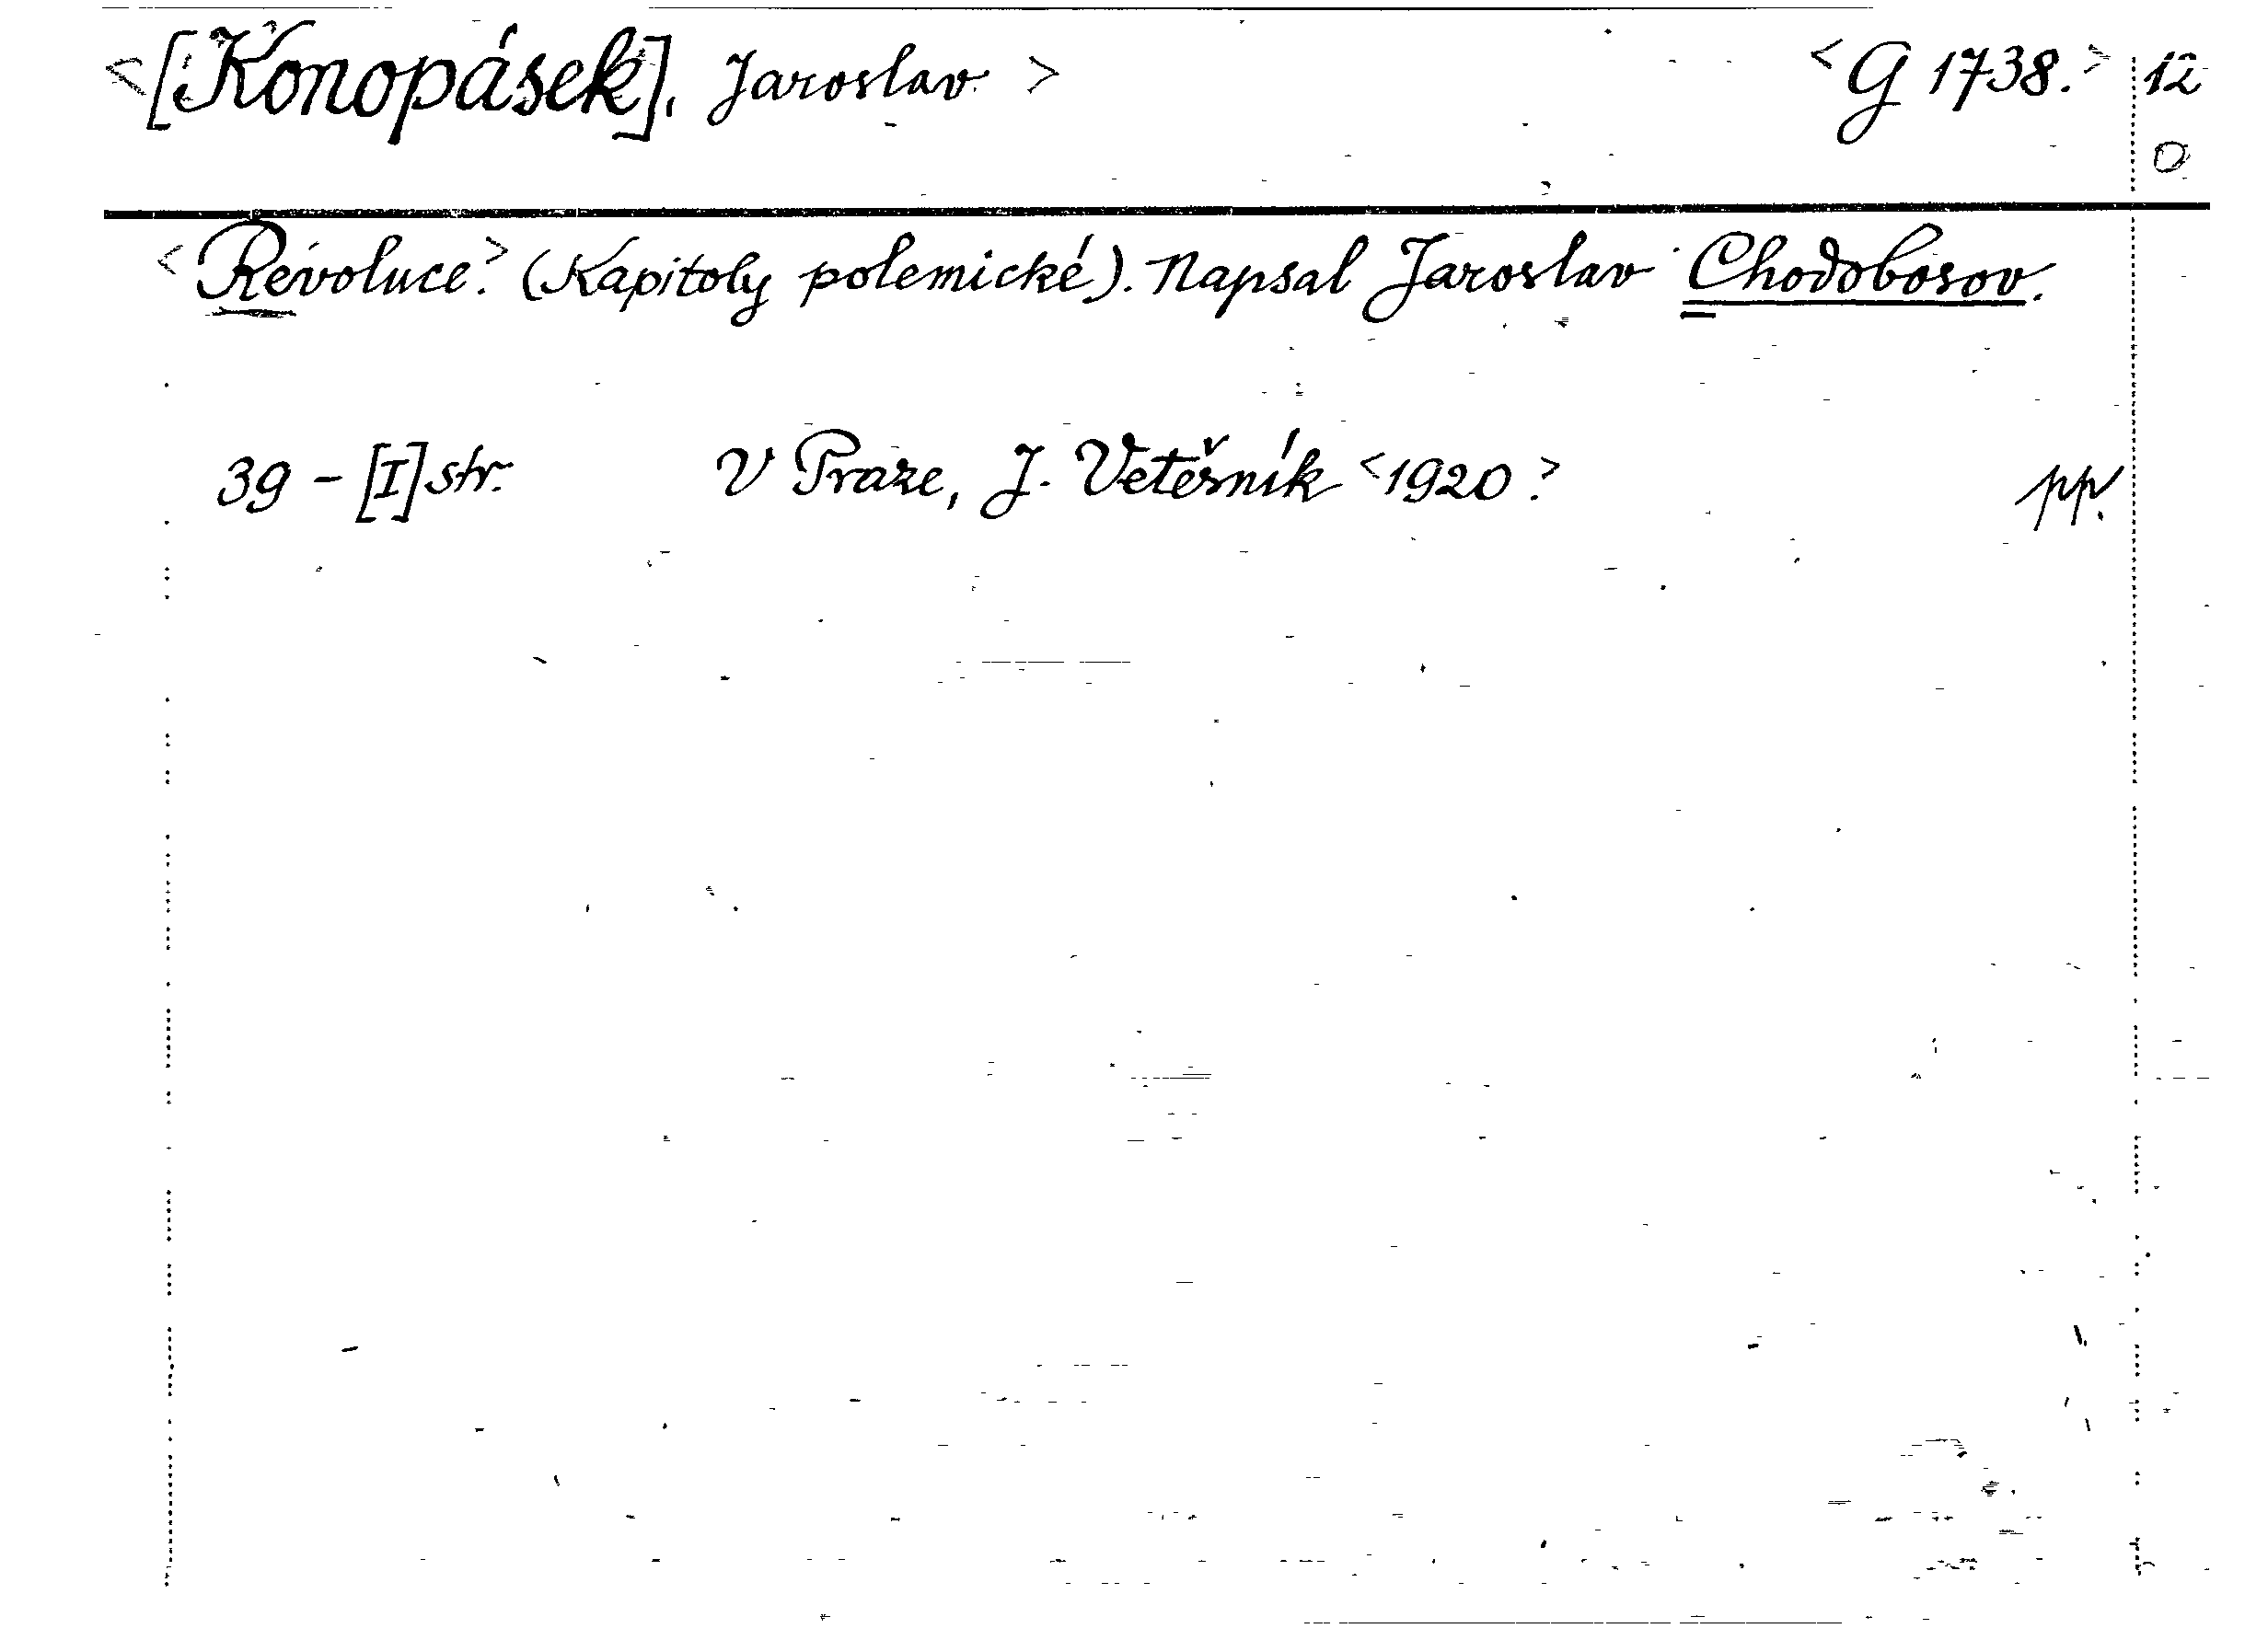 <[Konopásek], Jaroslav.> <G 1738.> 12
0
<Revoluce.> (Kapitoly polemické). Napsal Jaroslav Chodobosov.
39 - [I] str. V Praze, J. Vetešník <1920.> pp.